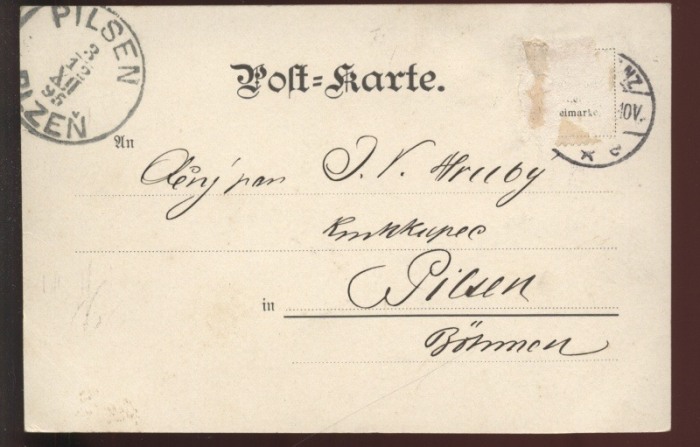 PILSEN
3
12
XII
95
PLZEŇ
Post=Karte.
NZ
10V.
eimarke
An
Ctěný pan J. V. Hruby
Knihkupec
in Pilsen
Böhmen